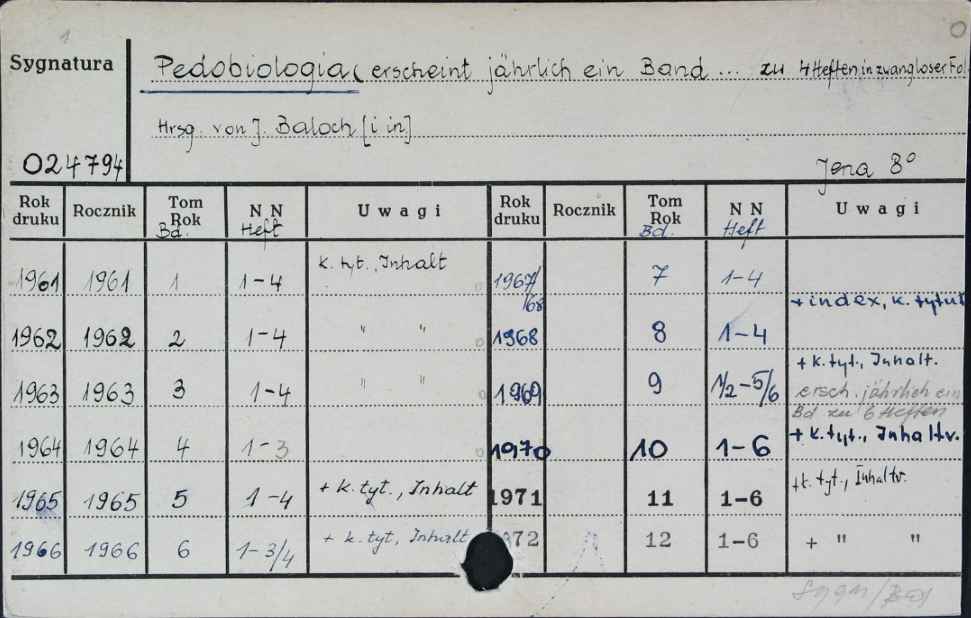 1
Sygnatura
Pedobiologia (erscheint jährlich ein Band ... zu 4 Heften in zwangloser Fol
Hrsg. von J. Baloch [i in]
024794
Jena 8°
Rok druku Rocznik Tom Rok Bd. N N Heft Uwagi Rok druku Rocznik Tom Rok Bd. N N Heft Uwagi
1961 1961 1 1-4 k. tyt., Inhalt 1967/68 7 1-4
1962 1962 2 1-4 " " 1968 8 1-4 + index, k. tytuł
1963 1963 3 1-4 " " 1969 9 1/2-5/6 + k. tyt., Inhalt.
ersch. jährlich ein
Bd zu 6 Heften
1964 1964 4 1-3 1970 10 1-6 + k. tyt., Inhaltv.
1965 1965 5 1-4 + k. tyt., Inhalt 1971 11 1-6 +k. tyt., Inhaltv.
1966 1966 6 1-3/4 + k. tyt, Inhalt 972 12 1-6 + " "